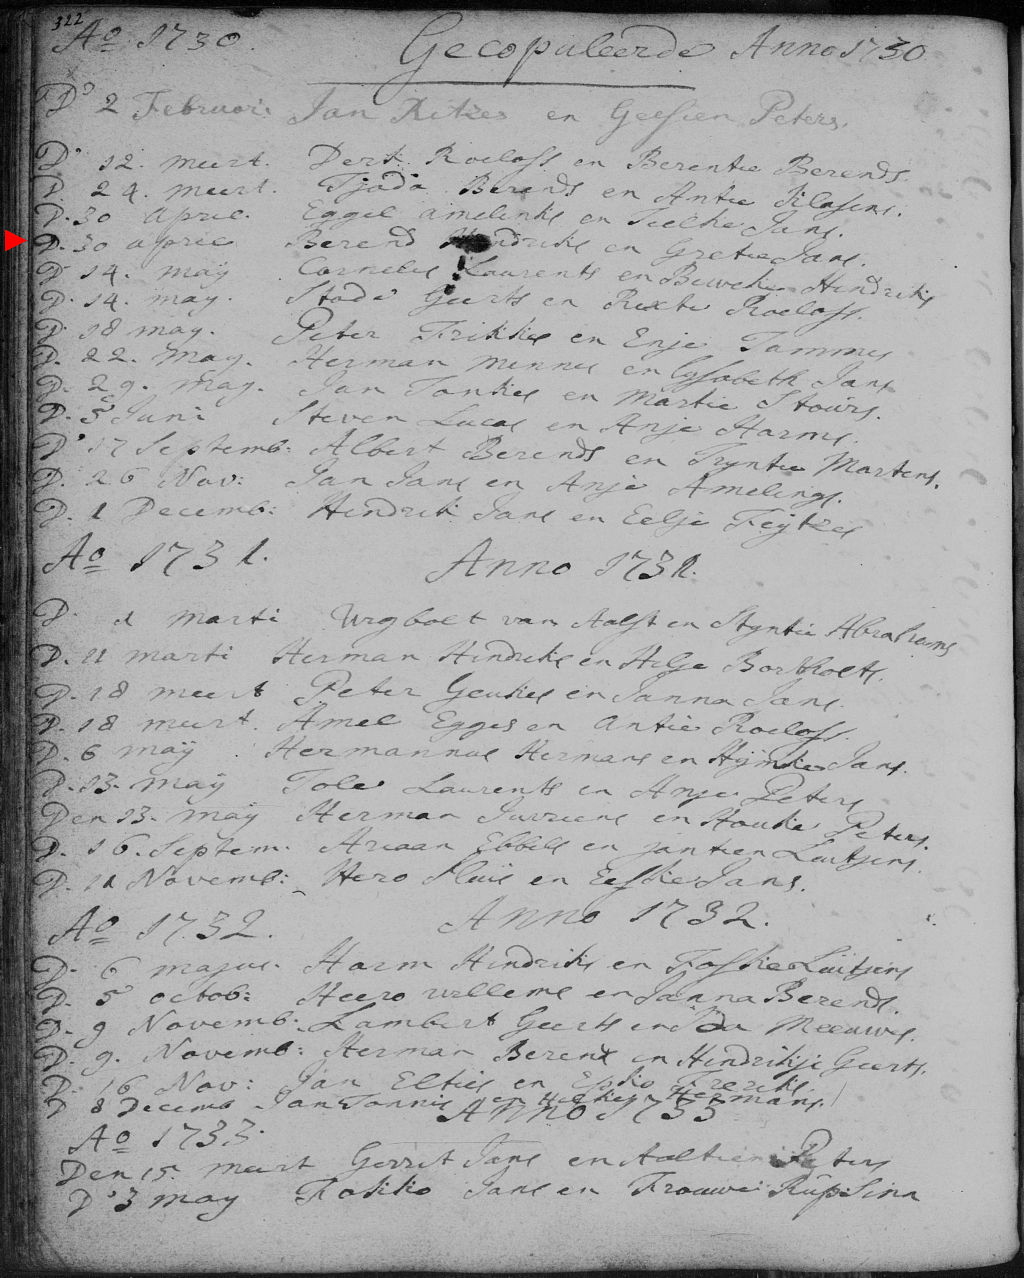 322
Ao 1730. Gecopuleerde Anno 1730
D. 2 Februari: Jan Ritzes en Geessien Peters.
D. 12. meert. Derk Roelofs en Berentie Berends
D. 24. meert. Tjada Berends en Antie Klasens.
D. 30 april. Eggel amelinks en Teelke Jans.
D. 30 april Berend Hindriks en Gretie Jans.
D. 14. maÿ Cornelis Laurents en Beweke Hindriks
D. 14. may. Stade Geerts en Rixte Roelofs.
D. 18 may. Peter Frikkes en Enje Tammes
D. 22. May. Herman Mennes en Elysabeth Jans
D. 29. may. Jan Jankes en Martie Stouws.
D. 5 Juni Steven Lucas en Anje Harms.
D. 17 Septemb: Albert Berends en Tryntie Martens.
D. 26 Nov: Jan Jans en Anje Amelings.
D. 1 Decemb: Hindrik Jans en Eelje Feijtzes
Ao 1731. Anno 1731.
D. 1 marti van Aalst en Styntie Abrahams
D. 11 marti Herman Hindriks en Hilje Borkholts.
D. 18 meert Peter Geukes en Janna Jans.
D. 18 meert. Amel Egges en Antie Roelofs.
D. 6 maÿ Hermannus Hermans en Hijmke Jans.
D. 13. maÿ Tole Laurents en Anje Peters
Den 13. maÿ Herman Jurriens en Houke Peters.
D. 16. Septem. Ariaan Ebbels en jantien Luitjens.
D. 11 Novemb: Hero Sluis en Eeskie Jans.
Ao 1732. Anno 1732.
D. 6 majus. Harm Hindriks en Foskie Luitjens
D. 5 octob: Heero willems en Janna Berends.
D. 9 Novemb: Lambert Geerts en Ida Meeuwes.
D. 9. Novemb: Herman Berens en Hindrikje Geerts.
D. 16 Nov: Jan Elties en Epko Frerks.
D 8 Decemb Jan Jannes en Hilkjen Hermans.
Ao 1733. Anno 1733
Den 15. meert Gerrit Jans en Aaltien Peters
D. 3 may Fokko Jans en Frouwe Rupsinn